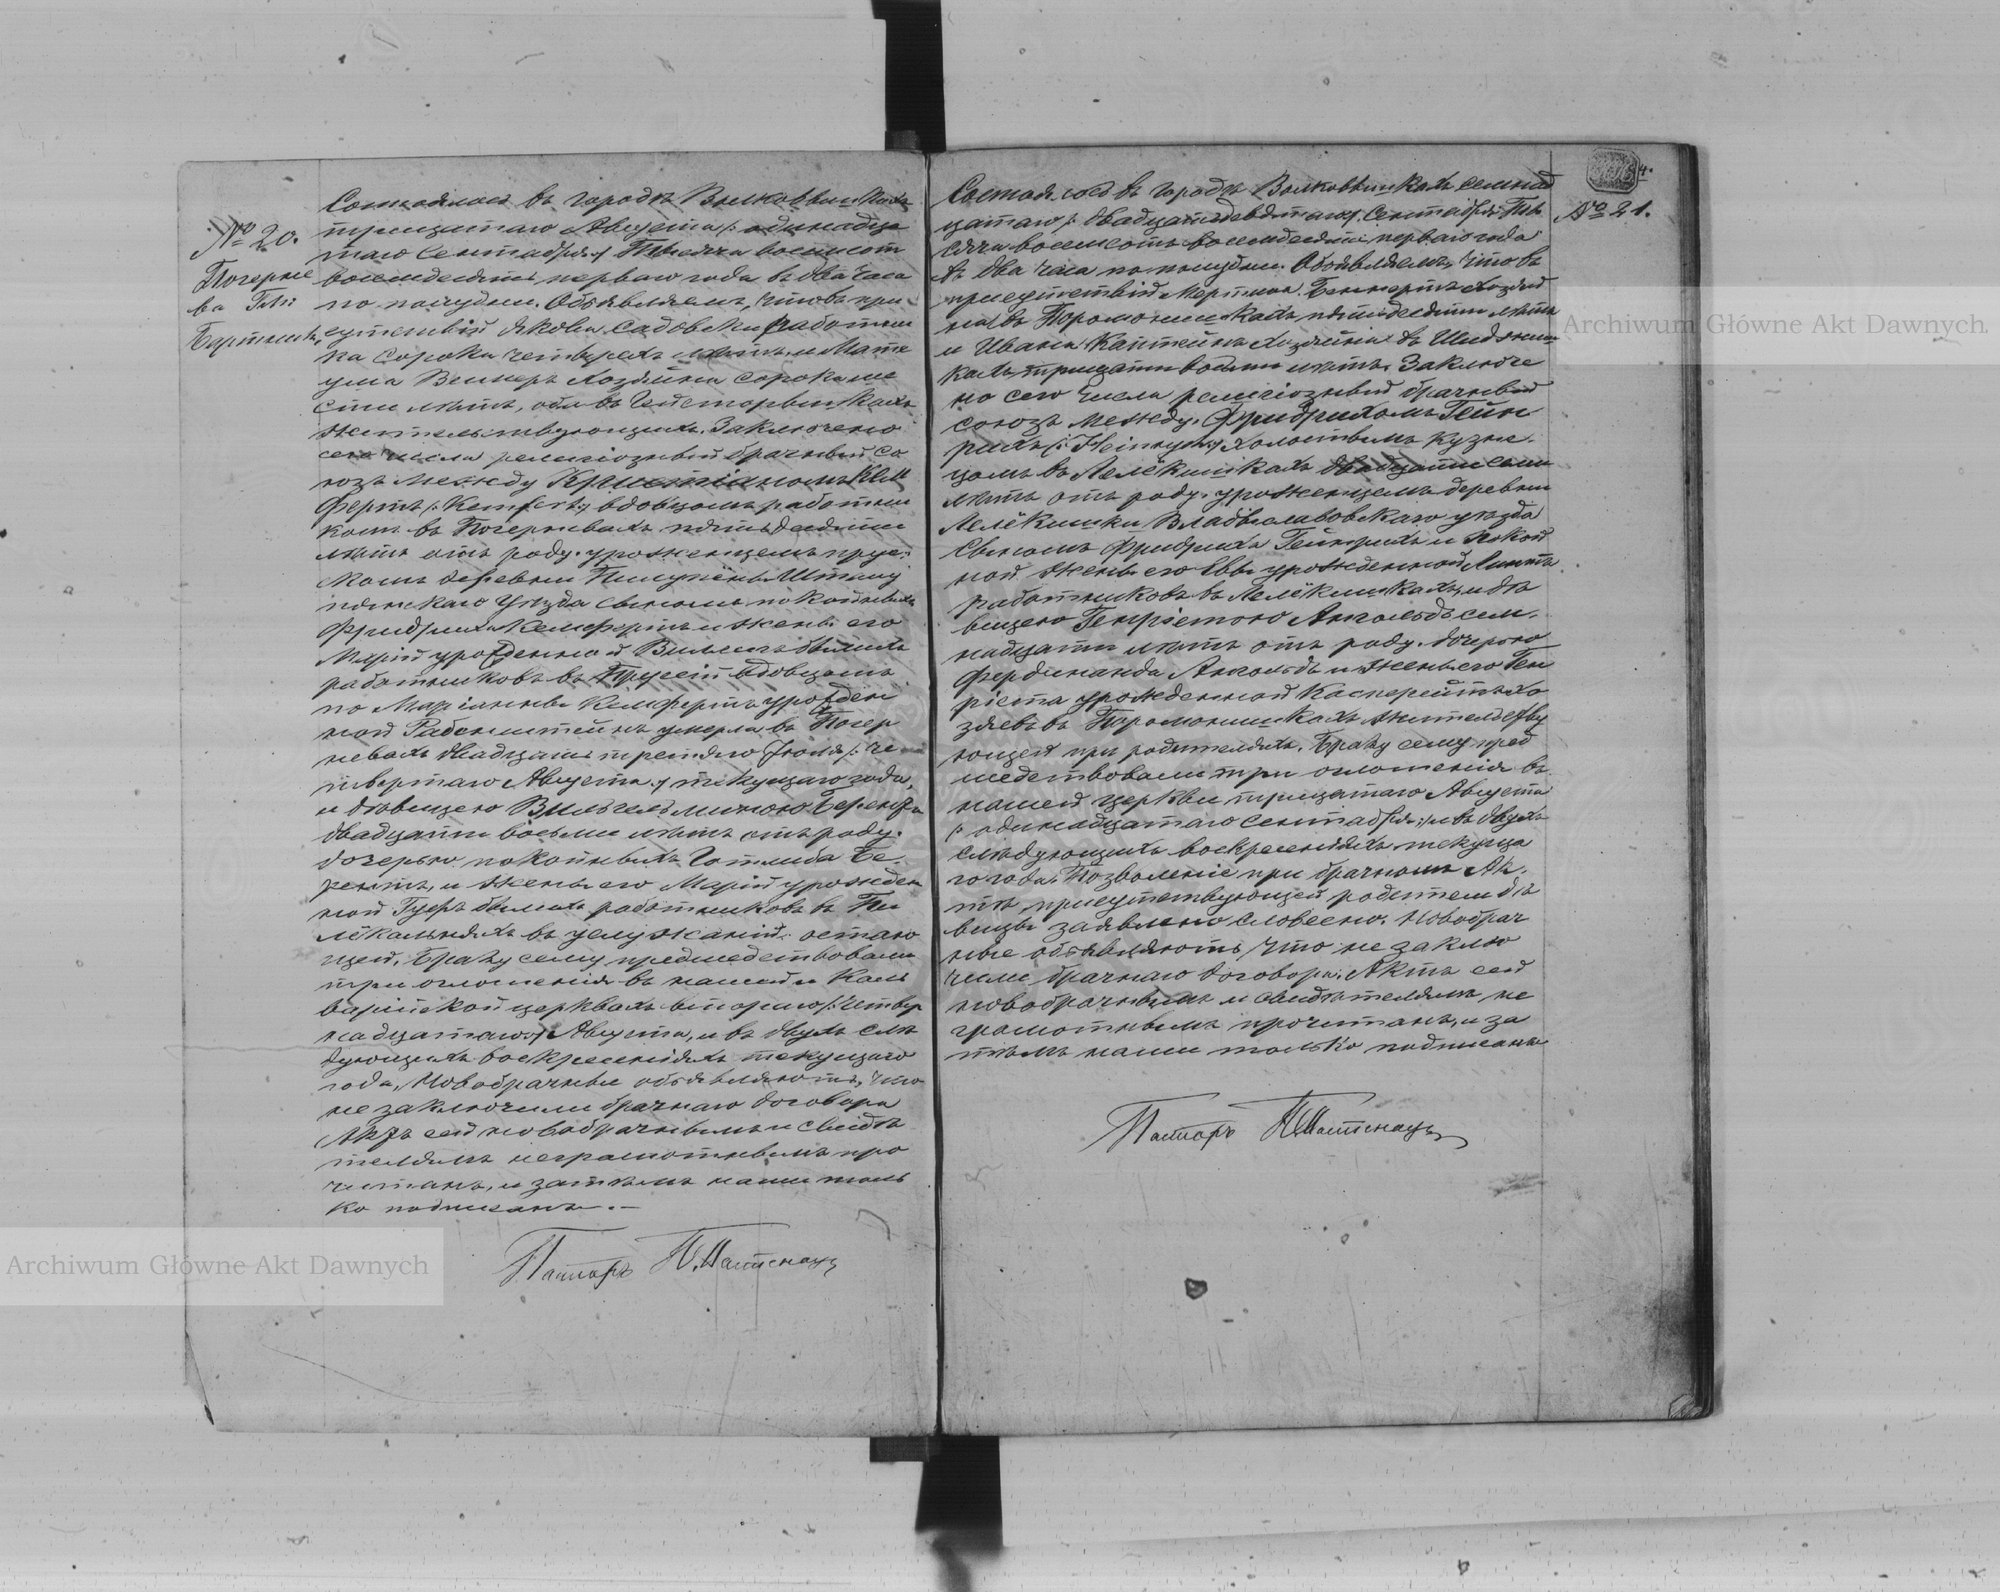 № 20.
Погерне
ва Гмі
Бартники,
Состоялось въ городѣ Волковышкахъ
тридцатаго Августа /: одинадца
таго Сентября :/ Тысяча восемсотъ
восемдесятъ перваго года въ два часа
по полудни. Объявляемъ, что въ при
сутствіи Якова Садовски работни
ка сорока четырехъ лѣтъ, и Мате
уша Веинеръ Хозяина сорокаше
сти лѣтъ, оба въ
жительствующихъ. Заключено
сего числа религіозный брачный со
юзъ между Христіаномъ Кем
фертъ /: Kemfert :/ вдовцомъ работни
комъ въ Погерневахъ пятьдесяти
лѣтъ отъ роду, уроженцемъ прус
скомъ деревни Пилупёнъ Шталу
пенскаго Уѣзда сыномъ покойныхъ
Фридриха Кемфертъ и жены его
Маріи урожденной бывшихъ
работниковъ въ Пруссіи вдовцомъ
по Маріанны Кемфертъ урожден
ной Рабенштейнъ умерла въ Погер
невахъ двадцать третяго Іюля /: че
твертаго Августа :/ текущаго года,
и дѣвицею Вильгельминою Берентъ
двадцати восьми лѣтъ отъ роду.
дочерью покойныхъ Готлиба Бе
рентъ, и жены его Маріи урожден
ной бывшихъ работниковъ въ Пи
лёкальняхъ въ услуженіи остаю
щей. Браку сему предшедствовали
три оглошенія въ нашей и Каль
варійской церквахъ второго /: четыр
надцатаго :/ Августа, и въ двухъ слѣ
дующихъ воскресеніяхъ текущаго
года, Новобрачные объявляютъ, что
не заключили брачнаго договора
Актъ сей новобрачнымъ и свидѣ
телямъ неграмотнымъ про
читанъ, и затѣмъ нами толь
ко подписанъ. —
Пасторъ
№ 21.
Состоялось въ городѣ Волковышкахъ семнад
цатаго /: двадцатьдевятаго :/ Сентября Ты
сяча восемсотъ восемдесятъ перваго года
въ два часа по полудни. Объявляемъ, что въ
присутствіи Мертина Беннертъ Хозяи
на въ Поромонишкахъ, пятидесяти лѣтъ
и Ивана Каптейнъ Хозяина въ
кахъ тридцати восьми лѣтъ. Заключе
но сего числа религіозный брачный
союзъ между, Фридрихомъ Гейн
рихъ /: Heinrych :/ холостымъ Кузне
цомъ въ Лелёкишкахъ двадцати семи
лѣтъ отъ роду, уроженцемъ деревни
Лелёкишки Владыславовскаго уѣзда
Сыномъ Фридриха Гейнрихъ и покой
ной жены его Евы урожденной
работниковъ въ Лелёкишкахъ, и дѣ
вицею Генріетою Ангольдъ сем
надцати лѣтъ отъ роду, дочерью
Фердинанда Ангольдъ и жены его Ген
ріета урожденной Касперейтъ Хо
зяевъ въ Поромонишкахъ жительству
ющей при родителяхъ. Браку сему пред
шедствовали три оглошенія въ
нашей церкви тридцатаго Августа
/: одинадцатаго Сентября :/ и въ двухъ
слѣдующихъ воскресеніяхъ текуща
го года. Позволеніе при брачномъ Ак
тѣ присутствующей родители дѣ
вицы заявлено словесно. Новобрач
ные объявляютъ, что не заклю
чили брачнаго договора, Актъ сей
новобрачнымъ и свидѣтелямъ не
грамотнымъ прочитанъ, и за
тѣмъ нами только подписанъ
Пасторъ
Archiwum Główne Akt Dawnych
Archiwum Główne Akt Dawnych.